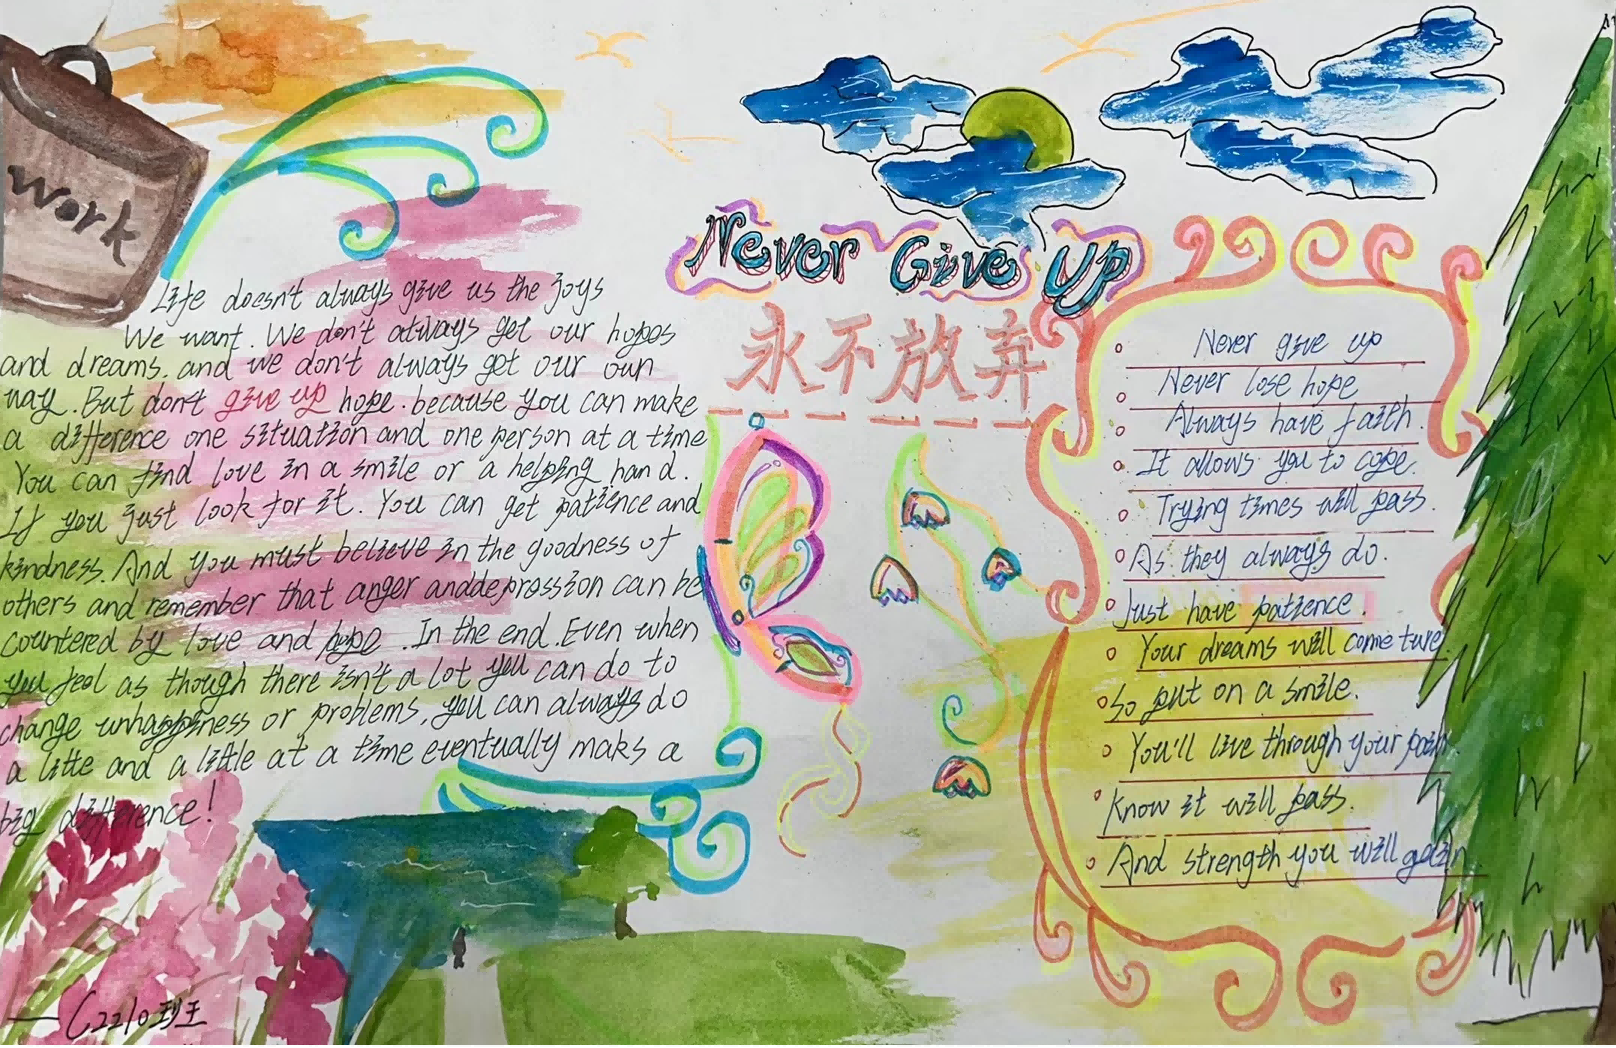 Work
Life doesn't always give us the joys
We want. We don't always get our hopes
and dreams. and we don't always get our own
way. But don't give up hope. because you can make
a difference one situation and one person at a time
You can find love in a smile or a helping hand.
If you just look for it. You can get patience and
kindness. And you must believe in the goodness of
others and remember that anger anddeprossion can be
countered by love and hope. In the end. Even when
you feel as though there isn't a lot you can do to
change unhappiness or problems, you can always do
a litte and a little at a time eventually maks a
big difference!
Never Give Up
永不放弃
Never give up
Never lose hope
Always have faith.
It allows you to cope.
Trying times will pass.
As they always do.
Just have patience.
Your dreams will come ture
So put on a smile.
You'll live through your pain.
Know it will pass.
And strength you will gain.